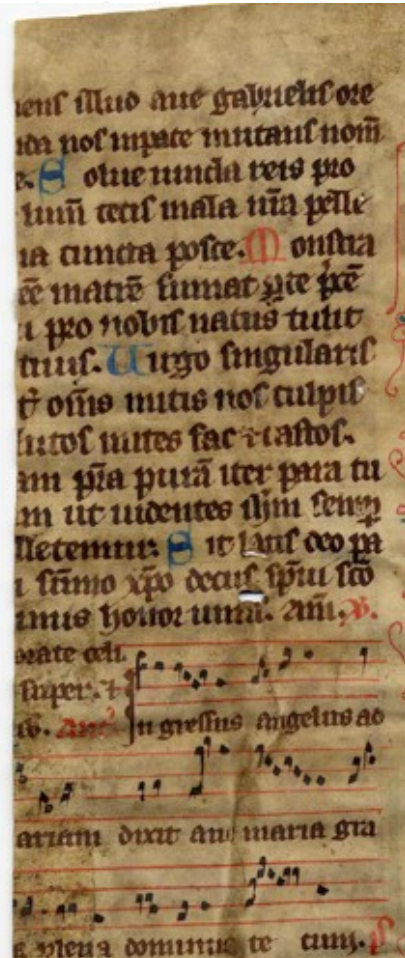 mens illud aue gabrielis ore
nda nos in pace mutans nom̄
e. Solue uincla reis pro
lum̄ cecis mala nr̄a pelle
na cuncta posce. Monstra
eē matrē sumat p̱ te p̄cē
i pro nobis natus tulit
tuus. Uirgo singularis
t̄ om̄s mitis nos culpis
lutos mites fac ⁊ castos.
am p̄sta purā iter para tu
m ut uidentes ih̄m semp̱
lletemur. Sit laus deo pa
i sūmo xp̄o decus sp̄iu sc̄o
imus honor unus. am̄. ℟.
orate celi
super. ⁊
us. An̄ Ingressus angelus ad
ariam dixit aue maria gra
a plena dominus te cum.